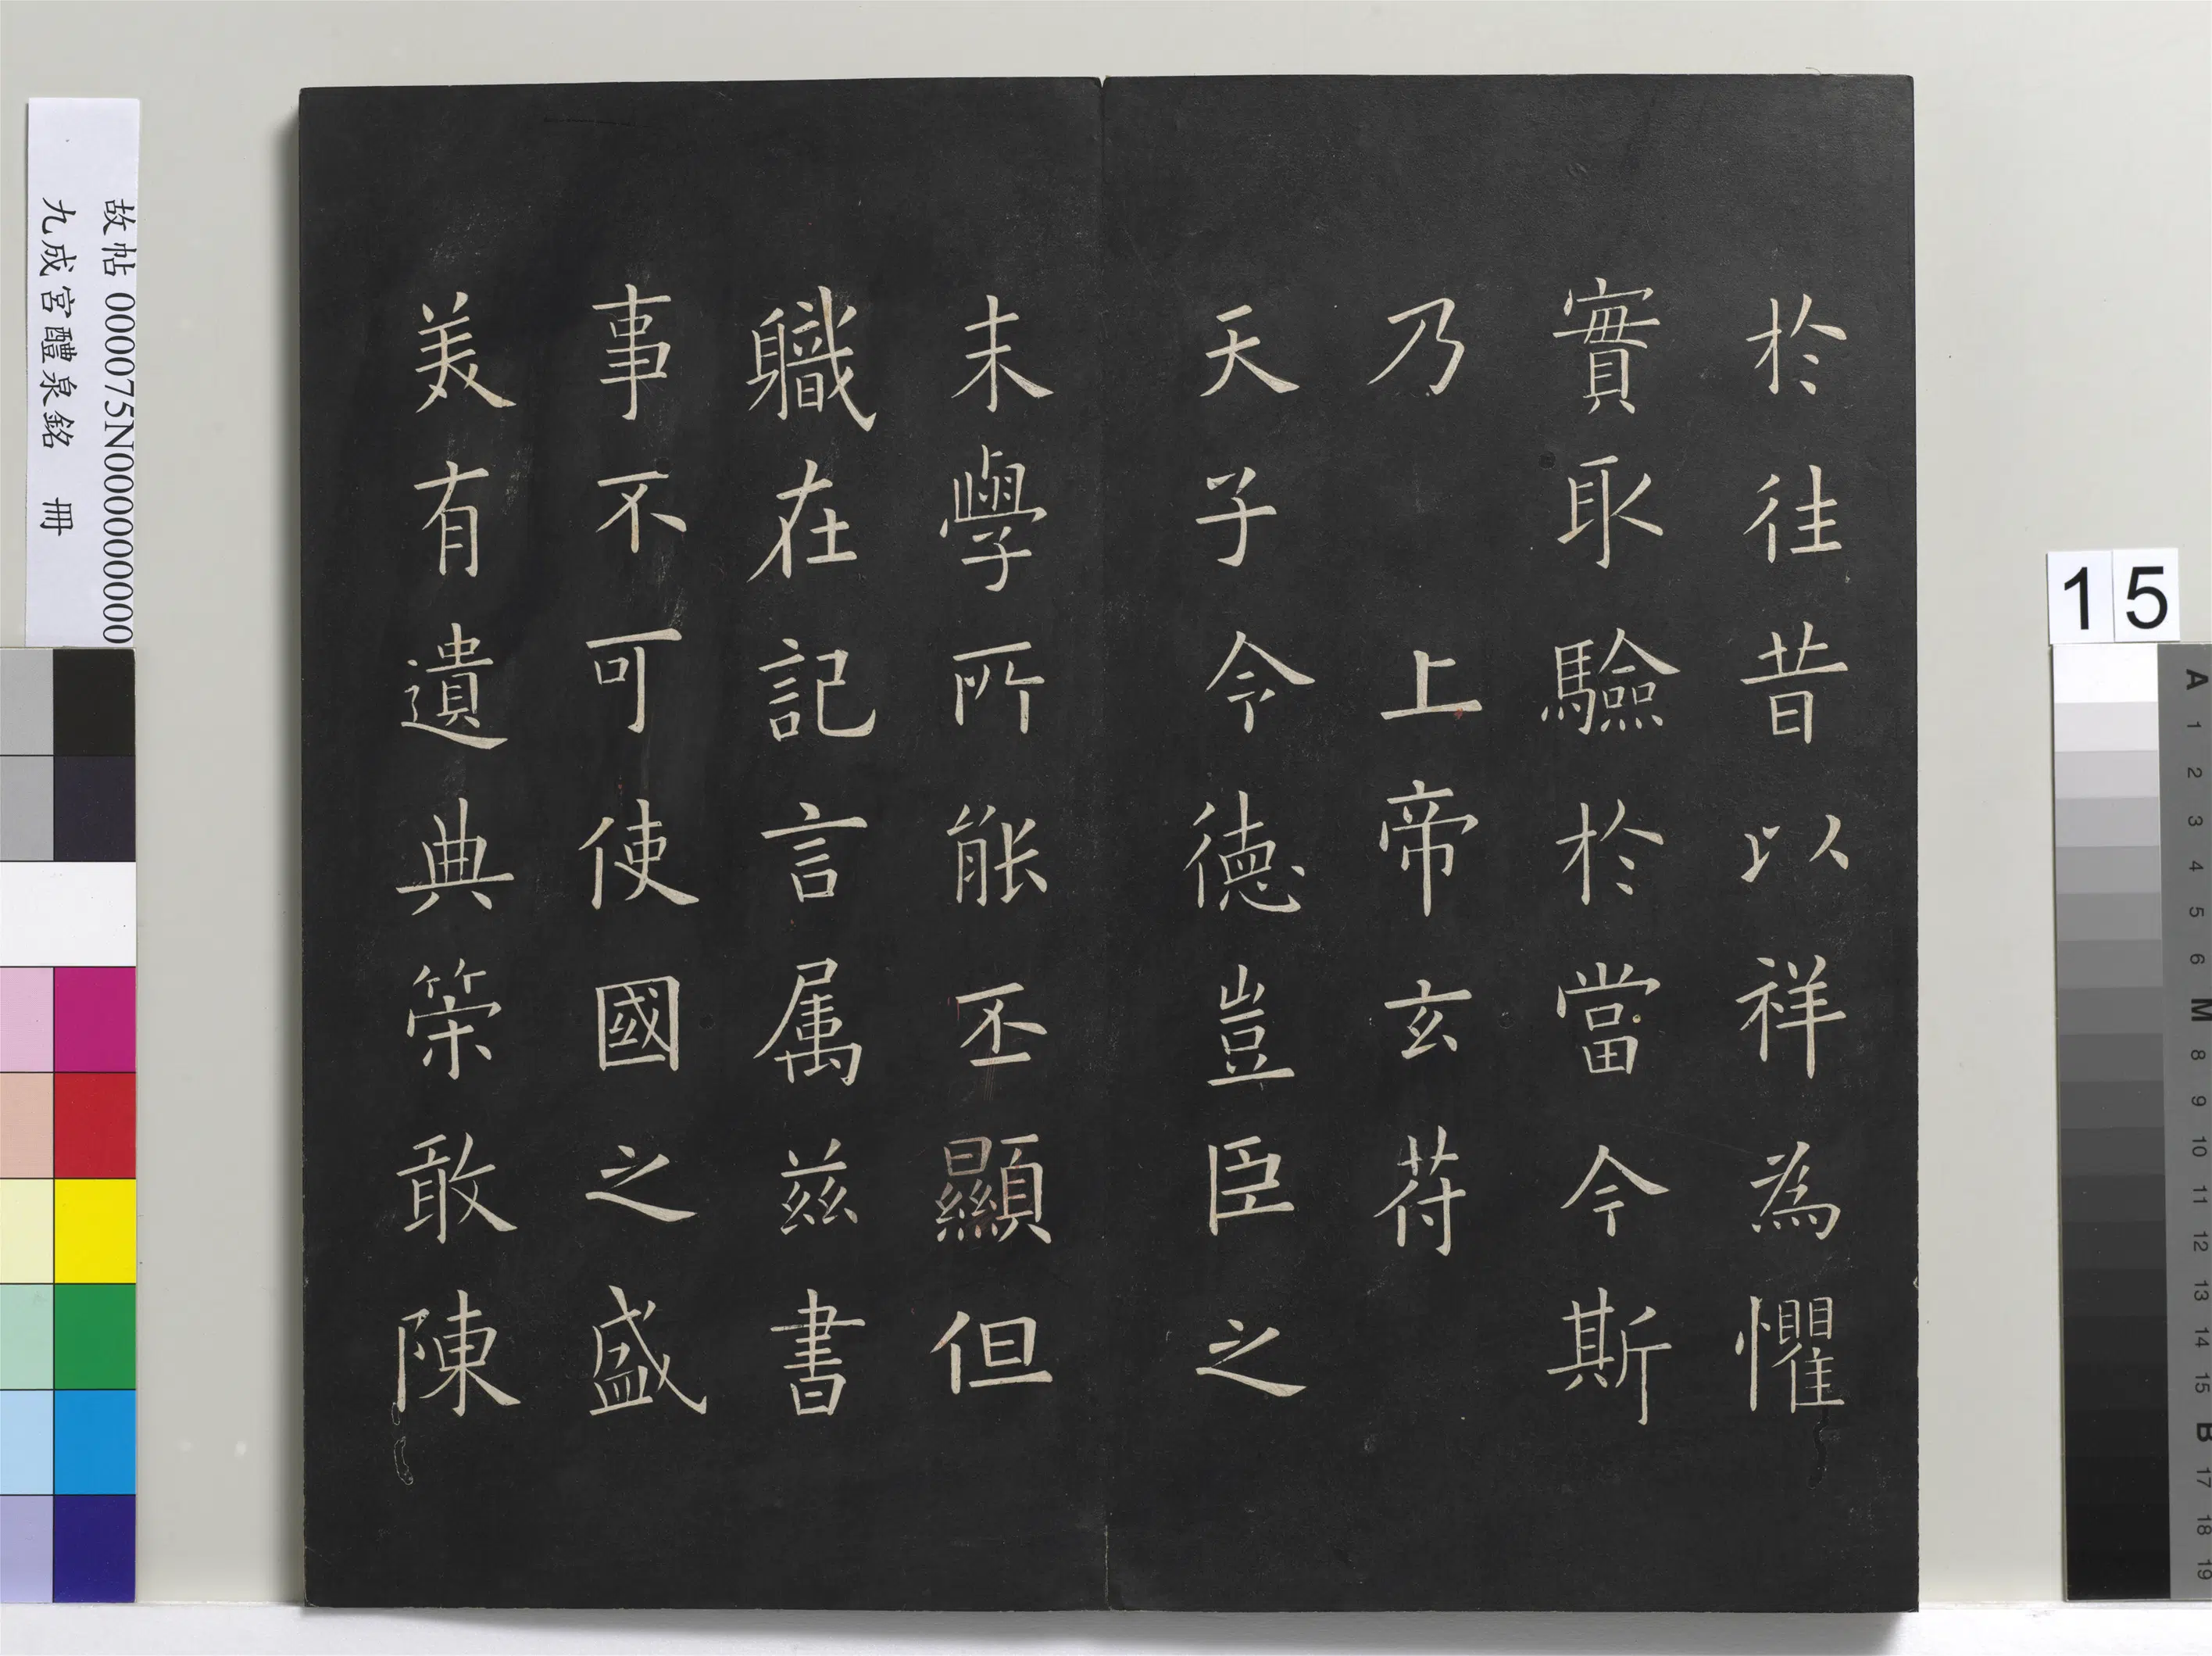 於往昔以祥為懼
實取驗於當今斯
乃上帝玄苻
天子令德豈臣之
末學所能丕顯但
職在記言属茲書
事不可使國之盛
美有遺典策敢陳
故帖000075N000000000
九成宮醴泉銘 冊
15
A
1
2
3
4
5
6
M
8
9
10
11
12
13
14
15
B
17
18
19